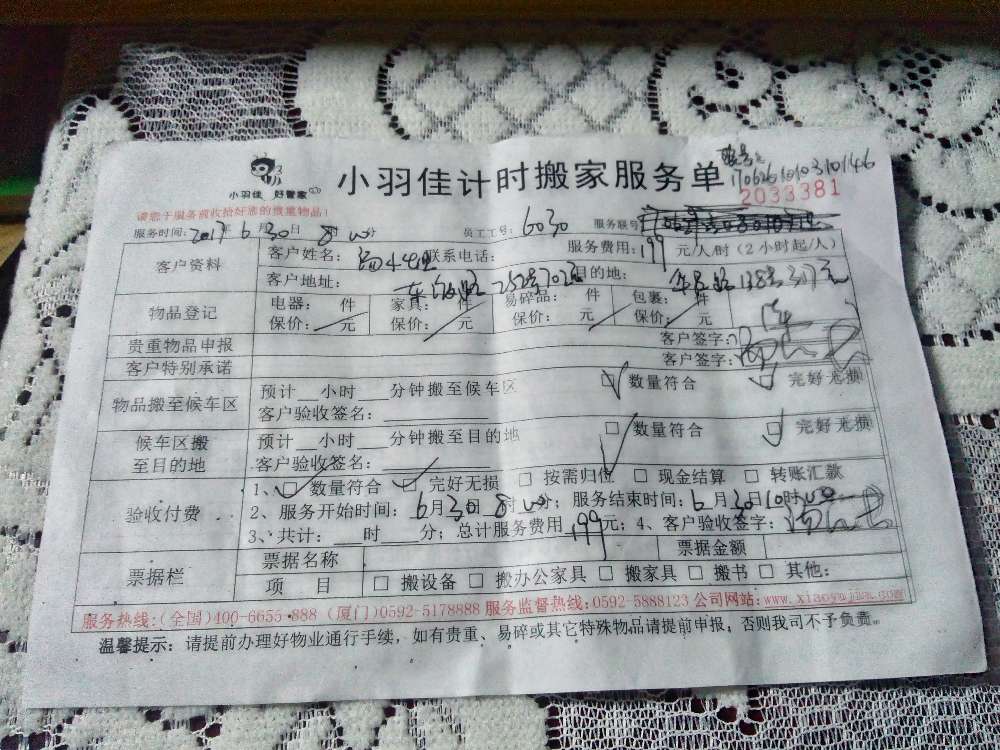 小羽佳 好管家
小羽佳计时搬家服务单
2033381
请您于服务前收拾好您的贵重物品!
服务时间: 2017年6月30日8时 分 员工工号: 6030 服务联号
客户资料
客户姓名: 联系电话: 服务费用: 199元/人/时 (2小时起/人)
客户地址: 目的地:
物品登记
电器: 件 家具: 件 易碎品: 件 包裹: 件
保价: 元 保价: 元 保价: 元 保价: 元
贵重物品申报 客户签字:
客户特别承诺 客户签字:
物品搬至候车区
预计 小时 分钟搬至候车区 数量符合 完好无损
客户验收签名:
候车区搬至目的地
预计 小时 分钟搬至目的地 数量符合 完好无损
客户验收签名:
验收付费
1、 数量符合 完好无损 按需归位 现金结算 转账汇款
2、服务开始时间: 6月30日8时 分; 服务结束时间: 6月30日10时
3、共计: 时 分; 总计服务费用199元; 4、客户验收签字:
票据栏
票据名称 票据金额
项 目 搬设备 搬办公家具 搬家具 搬书 其他:
服务热线:(全国)400-6655-888 (厦门)0592-5178888 服务监督热线:0592-5888123 公司网站:
温馨提示: 请提前办理好物业通行手续, 如有贵重、易碎或其它特殊物品请提前申报, 否则我司不予负责。